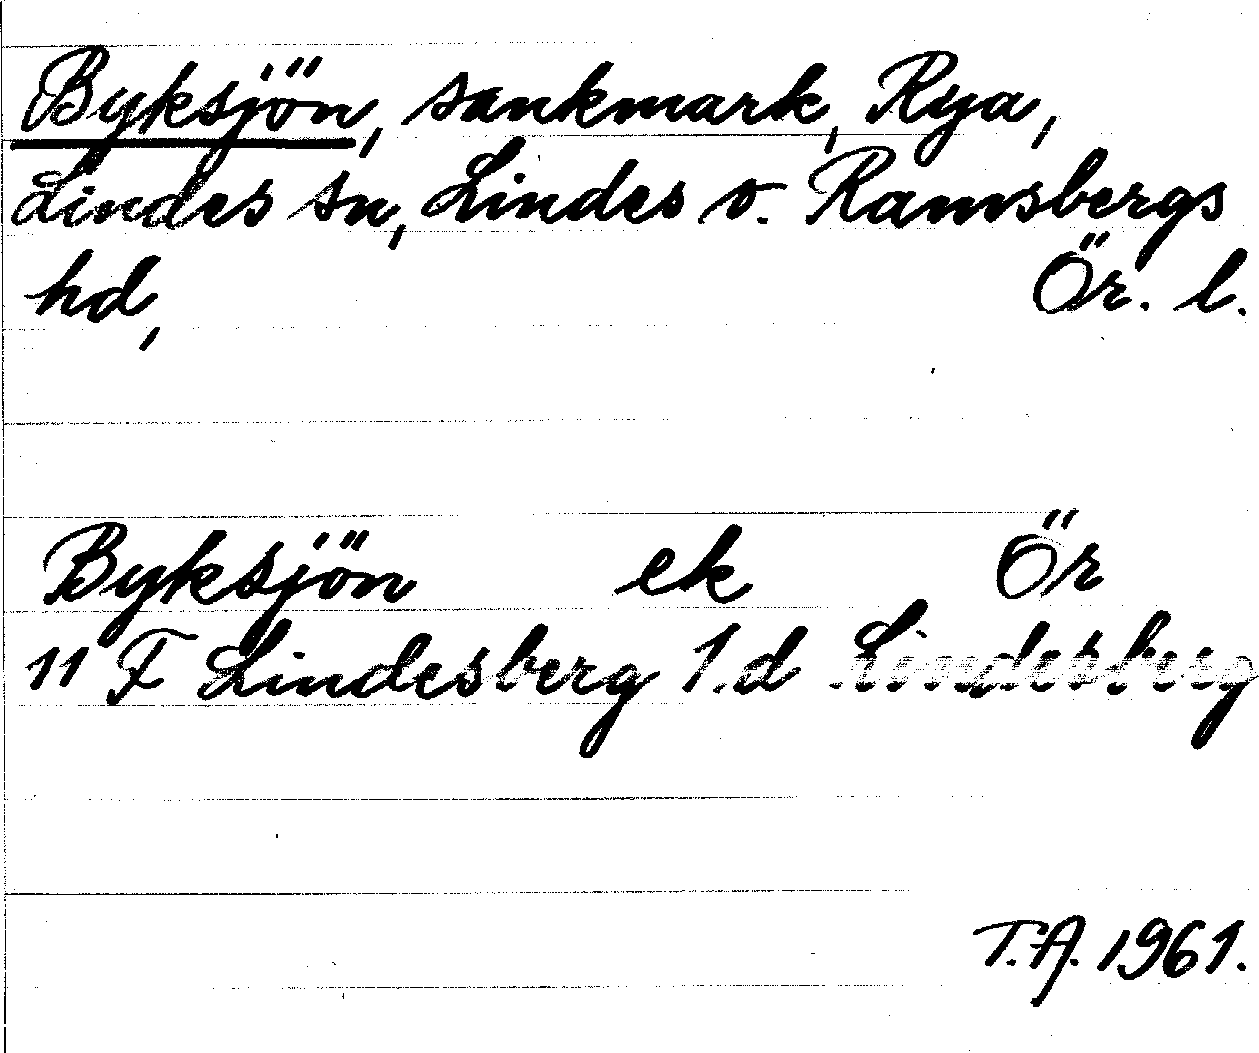 Byksjön, sankmark, Rya,
Lindes sn, Lindes o. Ramsbergs
hd, Ör. l.
Byksjön ek Ör
11 F Lindesberg 1.d Lindesberg
T.A. 1961.